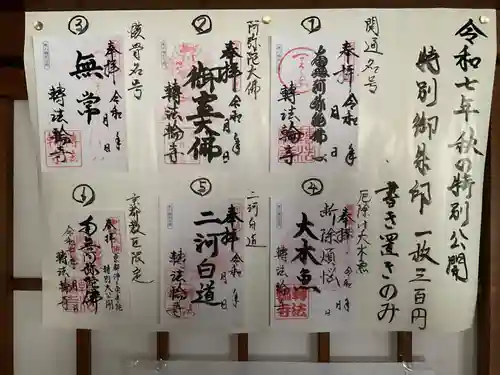 令和七年秋の特別公開
特別御朱印 一枚三百円
書き置きのみ
①
関通名号
奉拝 令和 年 月 日
南無阿弥陀佛
轉法輪寺
②
阿弥陀大佛
奉拝 令和 年 月 日
御室大佛
轉法輪寺
③
奉拝 令和 年 月 日
無常
轉法輪寺
④
厄除け大木魚
奉拝 令和 年 月 日
断除煩悩
大木魚
轉法輪寺
⑤
二河白道
奉拝 令和 年 月 日
二河白道
轉法輪寺
京都教区限定
奉拝
特別大公開
南無阿弥陀佛
轉法輪寺